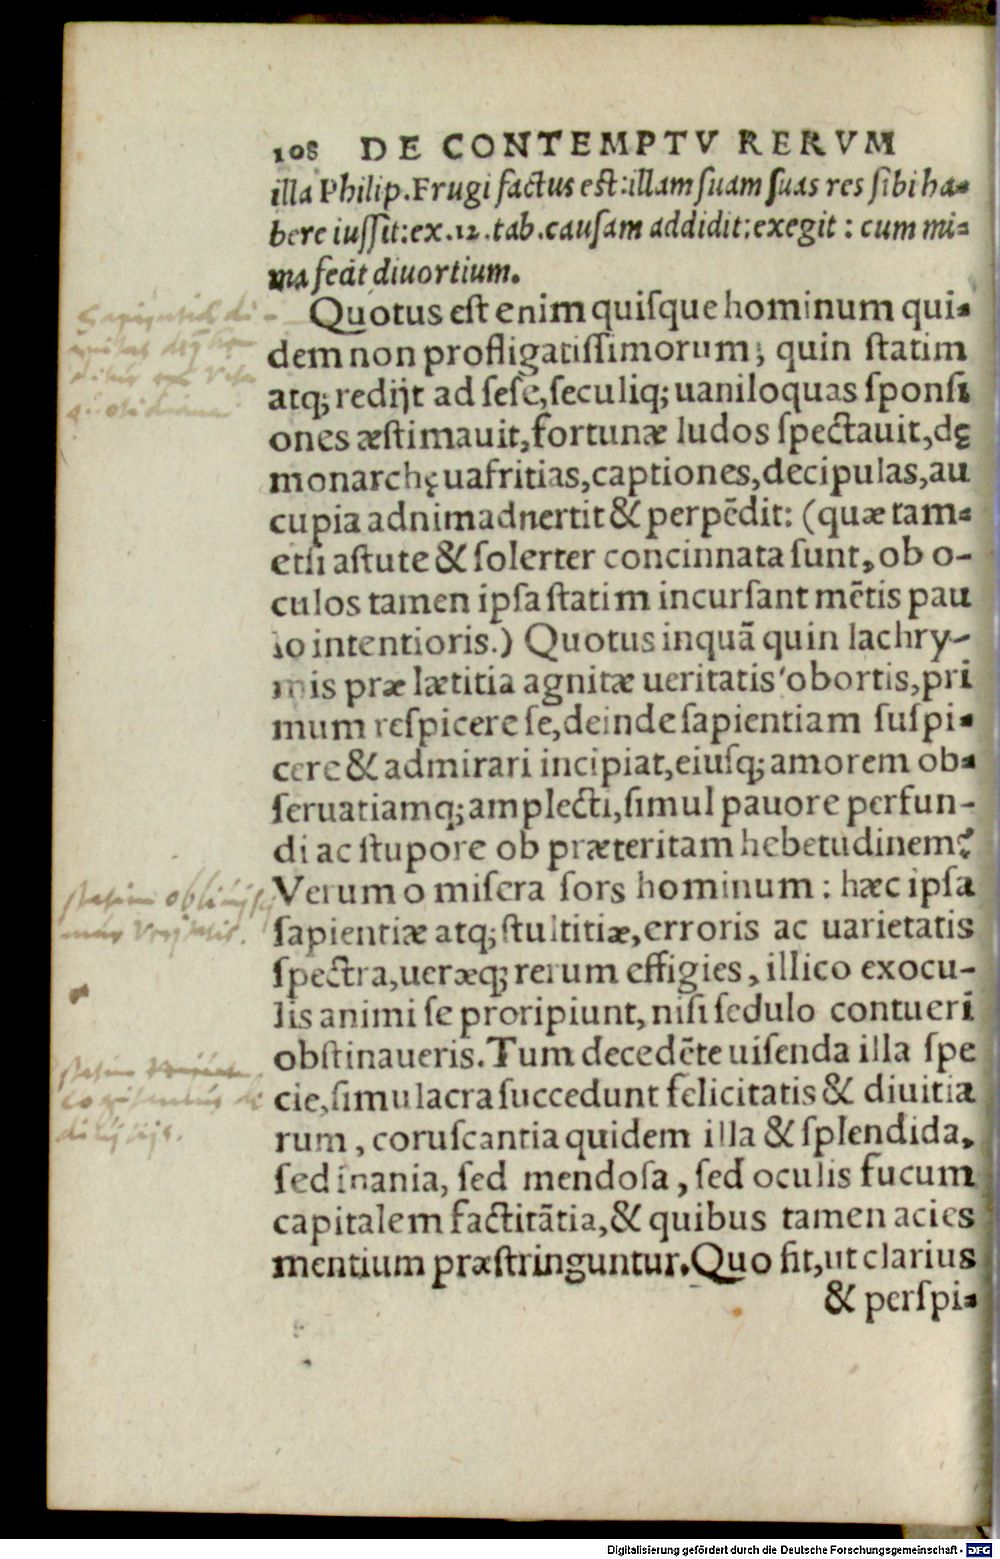 108 DE CONTEMPTV RERVM
illa Philip. Frugi factus est: illam suam suas res sibi ha-
bere iussit: ex. 12. tab. causam addidit: exegit: cum mi-
ma fecit diuortium.
Quotus est enim quisque hominum qui-
dem non profligatissimorum, quin statim
atq; redijt ad sese, seculiq; uaniloquas sponsi
ones æstimauit, fortunæ ludos spectauit, dę
monarchę uafritias, captiones, decipulas, au
cupia adnimaduertit & perpēdit: (quæ tam-
etsi astute & solerter concinnata sunt, ob o-
culos tamen ipsa statim incursant mētis pau
lo intentioris.) Quotus inquā quin lachry-
mis præ lætitia agnitæ ueritatis obortis, pri
mum respicere se, deinde sapientiam suspi-
cere & admirari incipiat, eiusq; amorem ob-
seruatiamq; amplecti, simul pauore perfun-
di ac stupore ob præteritam hebetudinem?
Verum o misera sors hominum: hæc ipsa
sapientiæ atq; stultitiæ, erroris ac uarietatis
spectra, ueræq; rerum effigies, illico ex ocu-
lis animi se proripiunt, nisi sedulo contueri
obstinaueris. Tum decedēte uisenda illa spe
cie, simulacra succedunt felicitatis & diuitia
rum, coruscantia quidem illa & splendida,
sed inania, sed mendosa, sed oculis fucum
capitalem factitātia, & quibus tamen acies
mentium præstringuntur. Quo fit, ut clarius
& perspi-
statim
statim
Digitalisierung gefördert durch die Deutsche Forschungsgemeinschaft - DFG